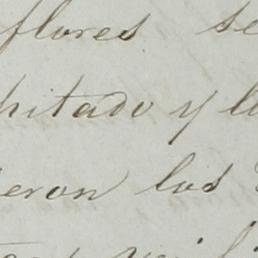 flores se
hitado y l
eron los